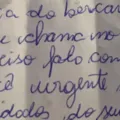 a do bercar
e chama no
ciso falo com
é urgente
dados do su